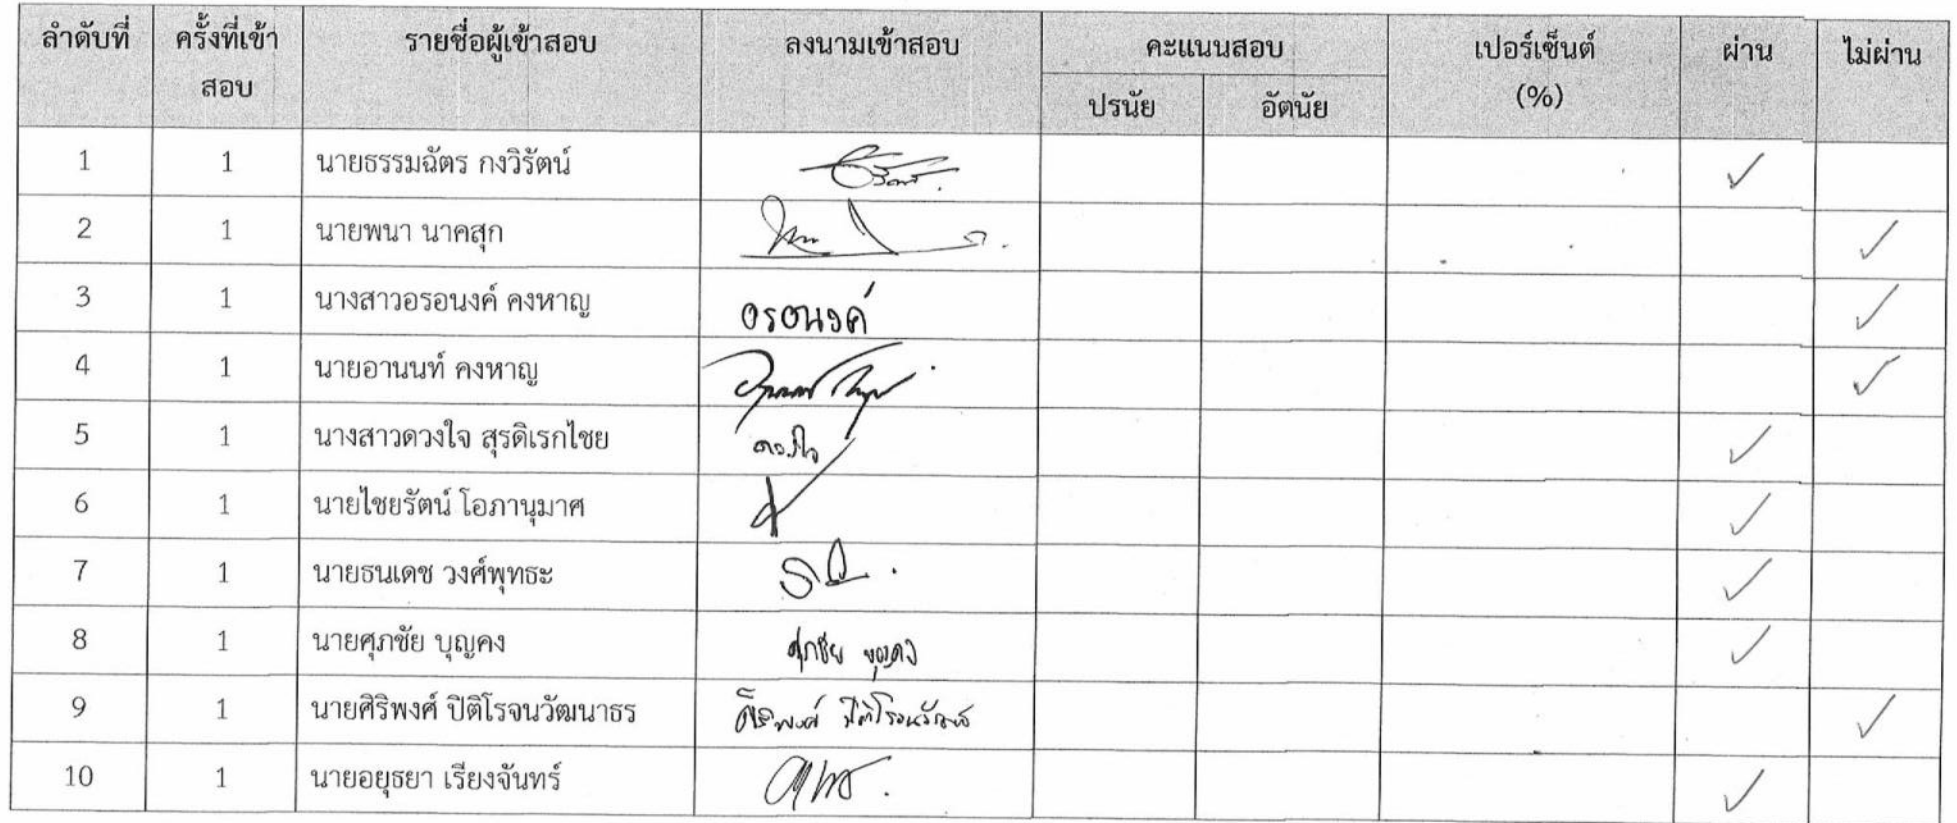 ลำดับที่ ครั้งที่เข้าสอบ รายชื่อผู้เข้าสอบ ลงนามเข้าสอบ คะแนนสอบ เปอร์เซ็นต์ (%) ผ่าน ไม่ผ่าน
ปรนัย อัตนัย
1 1 นายธรรมฉัตร กงวิรัตน์ ✓
2 1 นายพนา นาคสุก ✓
3 1 นางสาวอรอนงค์ คงหาญ อรอนงค์ ✓
4 1 นายอานนท์ คงหาญ ✓
5 1 นางสาวดวงใจ สุรดิเรกไชย ดวงใจ ✓
6 1 นายไชยรัตน์ โอภานุมาศ ✓
7 1 นายธนเดช วงศ์พุทธะ ✓
8 1 นายศุภชัย บุญคง ศุภชัย บุญคง ✓
9 1 นายศิริพงศ์ ปิติโรจนวัฒนาธร ศิริพงศ์ ✓
10 1 นายอยุธยา เรียงจันทร์ ✓